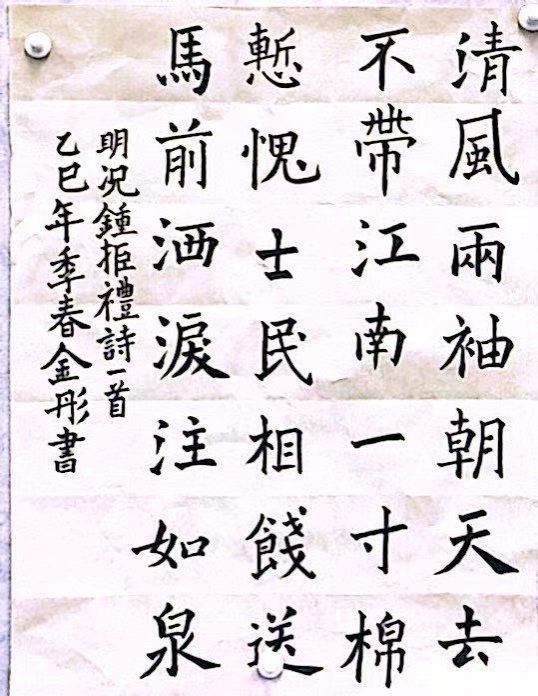 清風兩袖朝天去
不帶江南一寸棉
慙愧士民相餞送
馬前洒淚注如泉
明況鍾拒禮詩一首
乙巳年季春金彤書